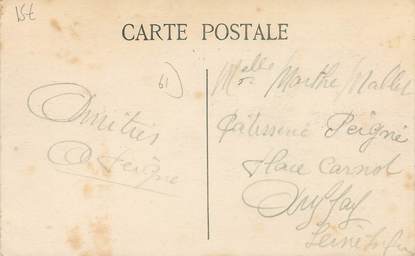 15t
CARTE POSTALE
61
Melle Marthe Mallet
Amitiés
Pâtisserie Peigné
A Peigné
Place Carnot
Seine Infre